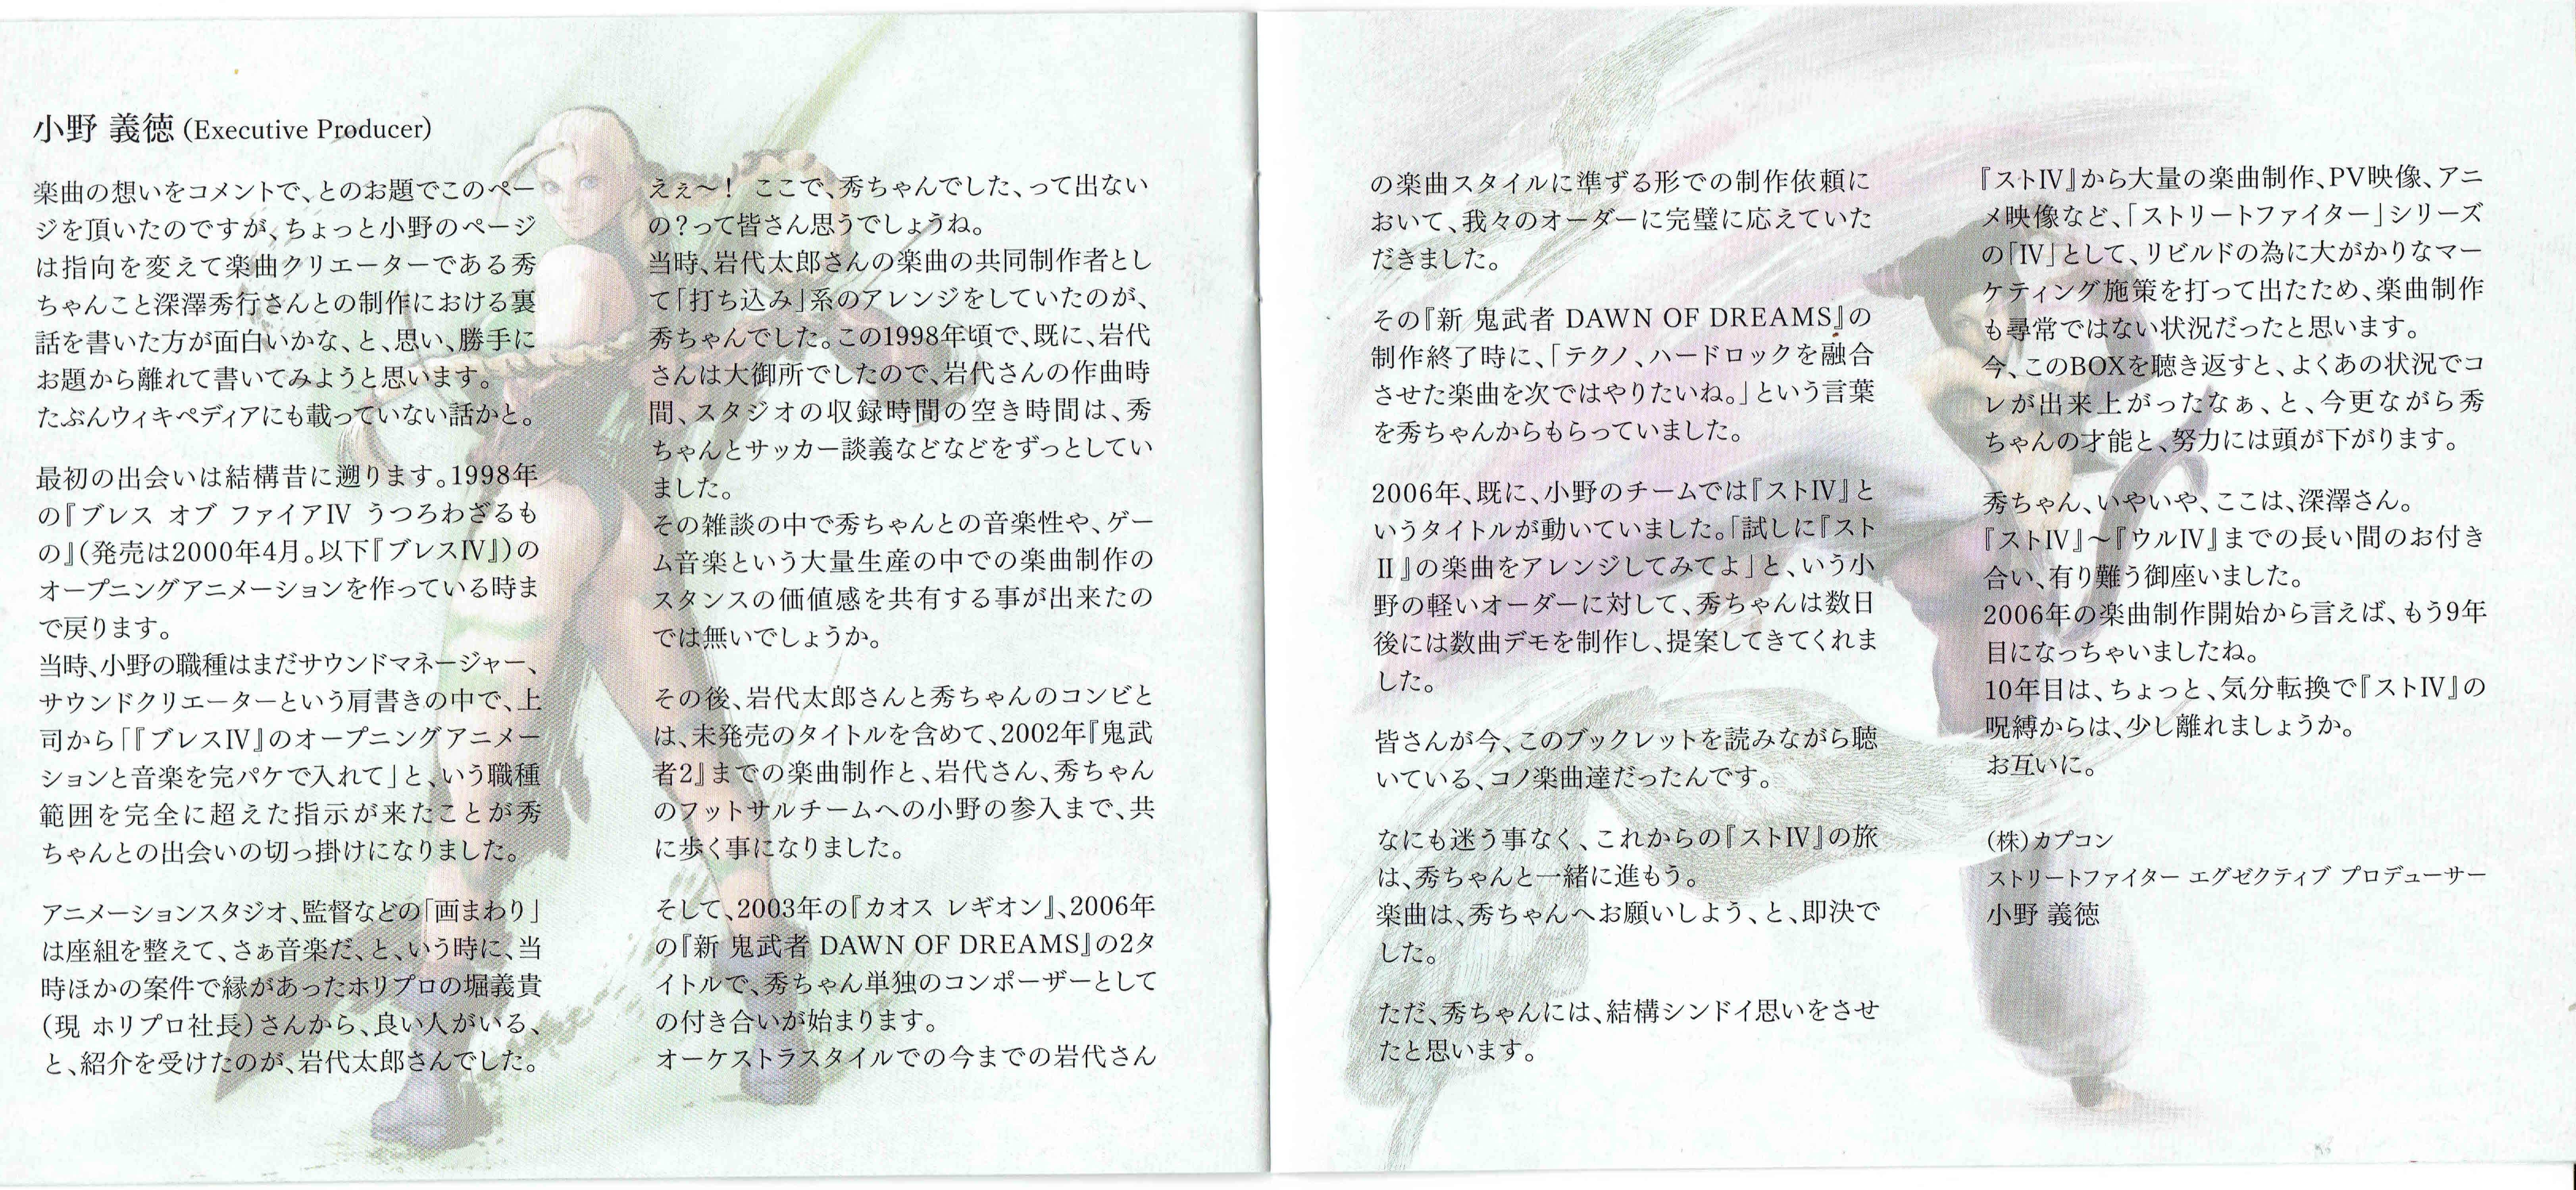 小野 義徳 (Executive Producer)
楽曲の想いをコメントで、とのお題でこのペー
ジを頂いたのですが、ちょっと小野のページ
は指向を変えて楽曲クリエーターである秀
ちゃんこと深澤秀行さんとの制作における裏
話を書いた方が面白いかな、と、思い、勝手に
お題から離れて書いてみようと思います。
たぶんウィキペディアにも載っていない話かと。
最初の出会いは結構昔に遡ります。1998年
の『ブレス オブ ファイアⅣ うつろわざるも
の』（発売は2000年4月。以下『ブレスⅣ』）の
オープニングアニメーションを作っている時ま
で戻ります。
当時、小野の職種はまだサウンドマネージャー、
サウンドクリエーターという肩書きの中で、上
司から「『ブレスⅣ』のオープニングアニメー
ションと音楽を完パケで入れて」と、いう職種
範囲を完全に超えた指示が来たことが秀
ちゃんとの出会いの切っ掛けになりました。
アニメーションスタジオ、監督などの「画まわり」
は座組を整えて、さぁ音楽だ、と、いう時に、当
時ほかの案件で縁があったホリプロの堀義貴
（現 ホリプロ社長）さんから、良い人がいる、
と、紹介を受けたのが、岩代太郎さんでした。
えぇ〜！ ここで、秀ちゃんでした、って出ない
の？って皆さん思うでしょうね。
当時、岩代太郎さんの楽曲の共同制作者とし
て「打ち込み」系のアレンジをしていたのが、
秀ちゃんでした。この1998年頃で、既に、岩代
さんは大御所でしたので、岩代さんの作曲時
間、スタジオの収録時間の空き時間は、秀
ちゃんとサッカー談義などなどをずっとしてい
ました。
その雑談の中で秀ちゃんとの音楽性や、ゲー
ム音楽という大量生産の中での楽曲制作の
スタンスの価値感を共有する事が出来たの
では無いでしょうか。
その後、岩代太郎さんと秀ちゃんのコンビと
は、未発売のタイトルを含めて、2002年『鬼武
者2』までの楽曲制作と、岩代さん、秀ちゃん
のフットサルチームへの小野の参入まで、共
に歩く事になりました。
そして、2003年の『カオス レギオン』、2006年
の『新 鬼武者 DAWN OF DREAMS』の2タ
イトルで、秀ちゃん単独のコンポーザーとして
の付き合いが始まります。
オーケストラスタイルでの今までの岩代さん
の楽曲スタイルに準ずる形での制作依頼に
おいて、我々のオーダーに完璧に応えていた
だきました。
その『新 鬼武者 DAWN OF DREAMS』の
制作終了時に、「テクノ、ハードロックを融合
させた楽曲を次ではやりたいね。」という言葉
を秀ちゃんからもらっていました。
2006年、既に、小野のチームでは『ストⅣ』と
いうタイトルが動いていました。「試しに『スト
Ⅱ』の楽曲をアレンジしてみてよ」と、いう小
野の軽いオーダーに対して、秀ちゃんは数日
後には数曲デモを制作し、提案してきてくれま
した。
皆さんが今、このブックレットを読みながら聴
いている、コノ楽曲達だったんです。
なにも迷う事なく、これからの『ストⅣ』の旅
は、秀ちゃんと一緒に進もう。
楽曲は、秀ちゃんへお願いしよう、と、即決で
した。
ただ、秀ちゃんには、結構シンドイ思いをさせ
たと思います。
『ストⅣ』から大量の楽曲制作、PV映像、アニ
メ映像など、「ストリートファイター」シリーズ
の「Ⅳ」として、リビルドの為に大がかりなマー
ケティング施策を打って出たため、楽曲制作
も尋常ではない状況だったと思います。
今、このBOXを聴き返すと、よくあの状況でコ
レが出来上がったなぁ、と、今更ながら秀
ちゃんの才能と、努力には頭が下がります。
秀ちゃん、いやいや、ここは、深澤さん。
『ストⅣ』〜『ウルⅣ』までの長い間のお付き
合い、有り難う御座いました。
2006年の楽曲制作開始から言えば、もう9年
目になっちゃいましたね。
10年目は、ちょっと、気分転換で『ストⅣ』の
呪縛からは、少し離れましょうか。
お互いに。
（株）カプコン
ストリートファイター エグゼクティブ プロデューサー
小野 義徳